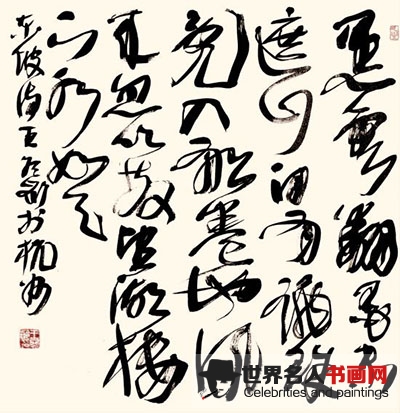 黑雲翻墨未
遮山白雨跳珠
乱入船卷地风
来忽吹散望湖楼
下水如天
东坡诗王冬龄于杭州
世界名人书画网
Celebrities and paintings